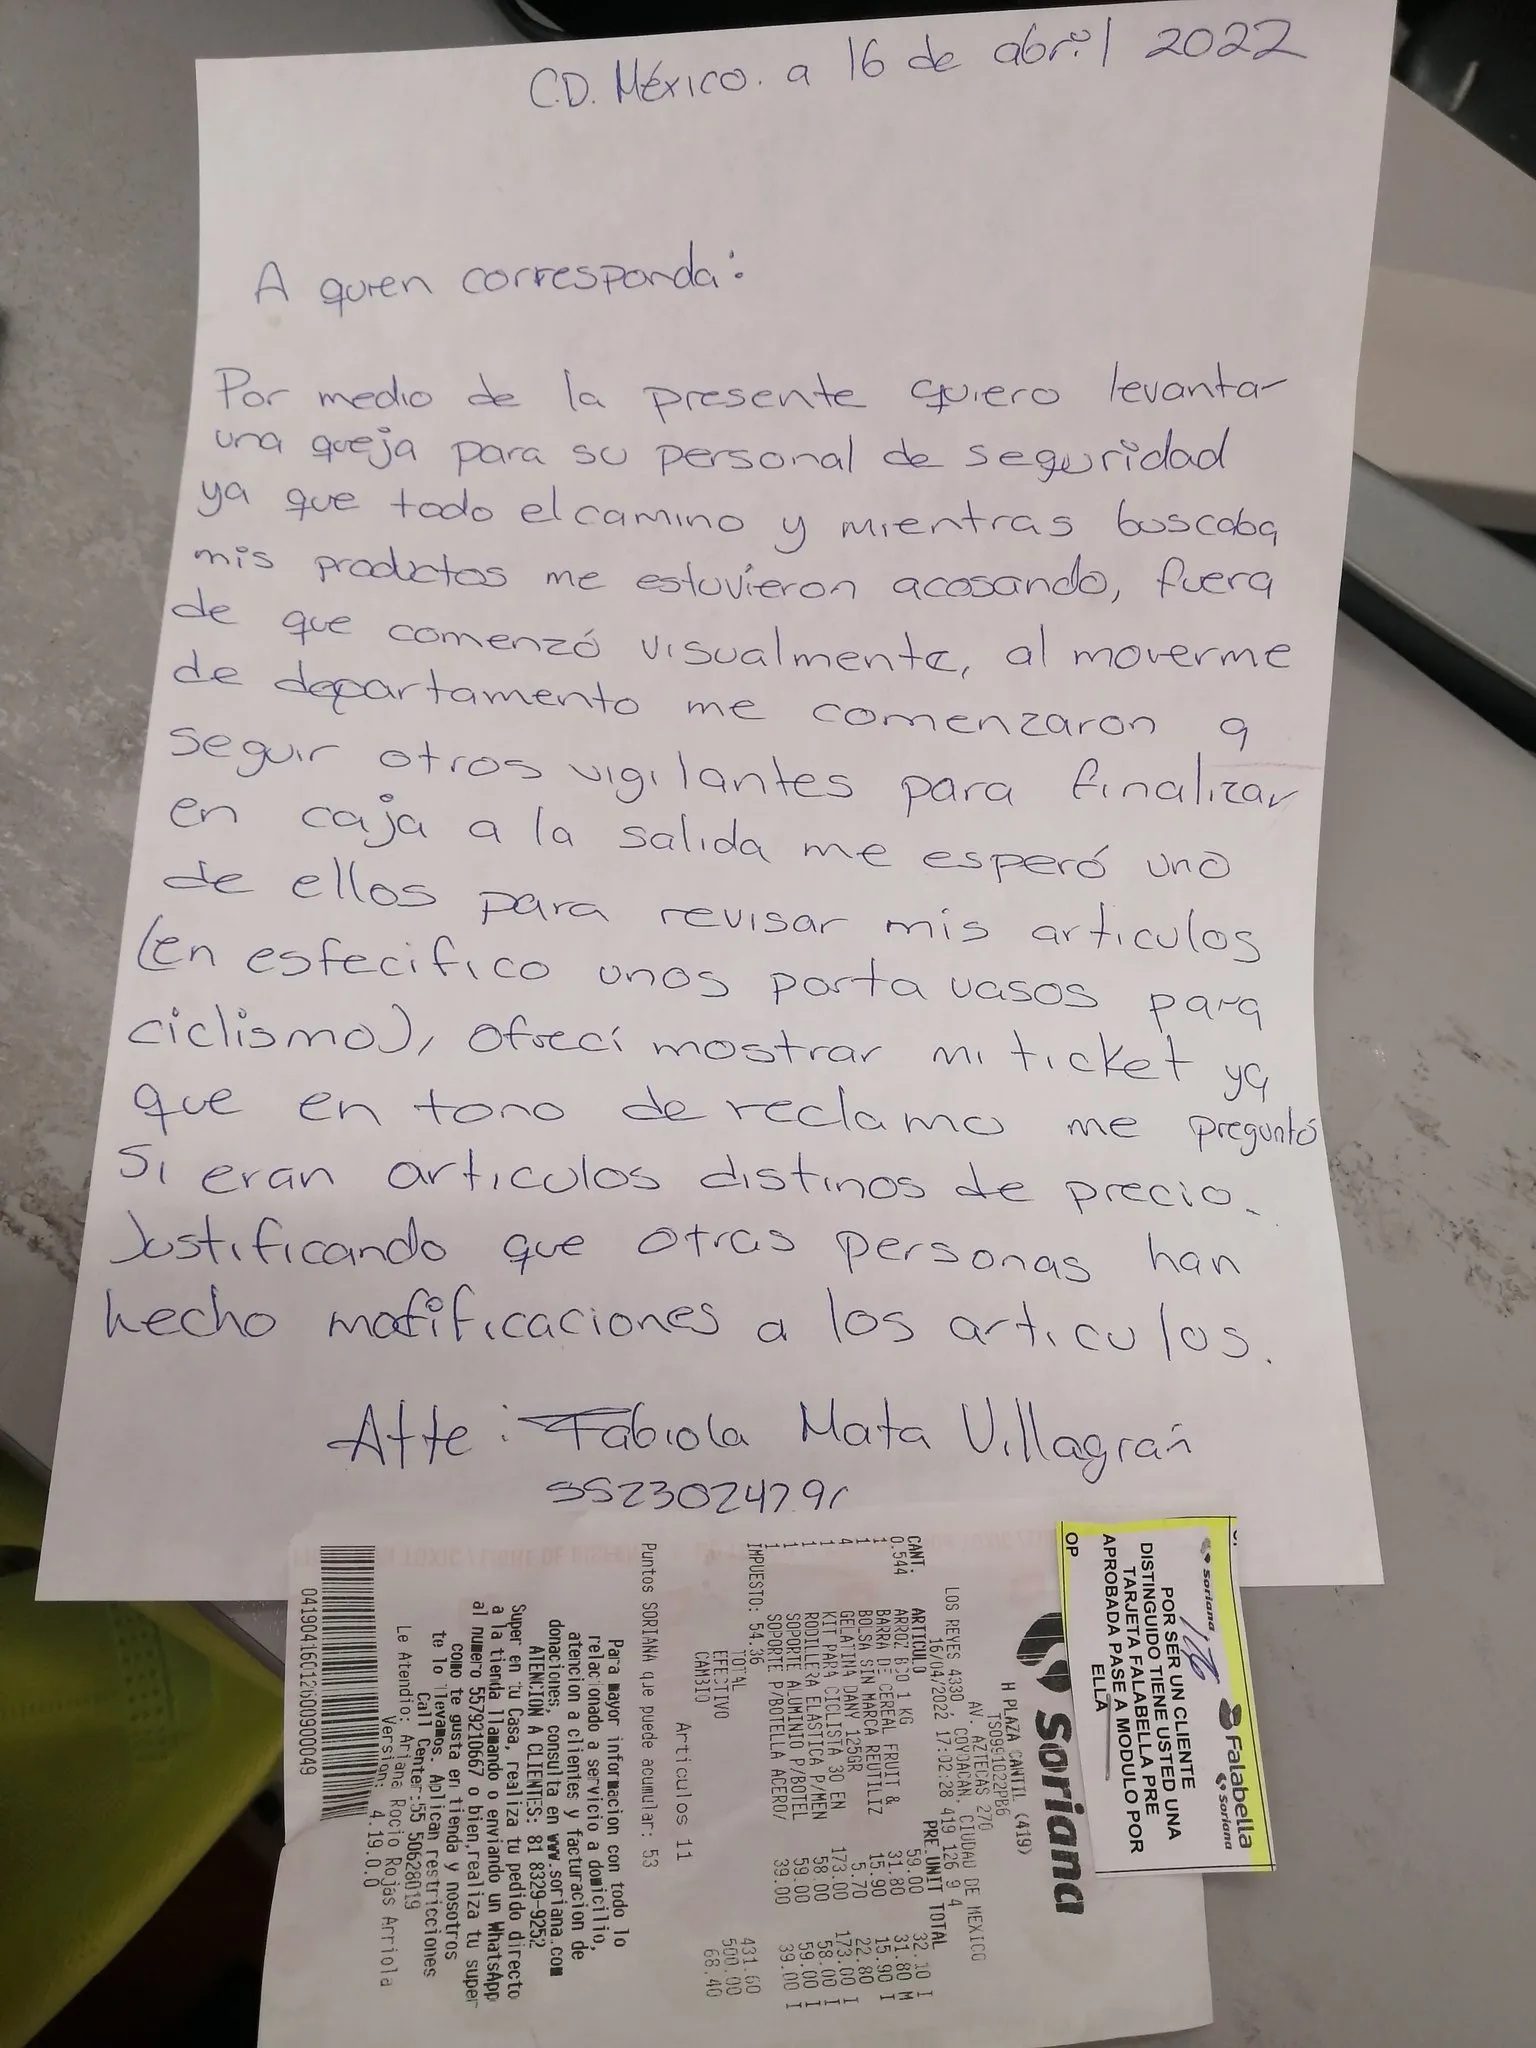 C.D. México. a 16 de abril 2022
A quien corresponda:
Por medio de la presente quiero levantar
una queja para su personal de seguridad
ya que todo el camino y mientras buscaba
mis productos me estuvieron acosando, fuera
de que comenzó visualmente, al moverme
de departamento me comenzaron a
seguir otros vigilantes para finalizar
en caja a la salida me esperó uno
de ellos para revisar mis articulos
(en esfecifico unos porta vasos para
ciclismo), ofrecí mostrar mi ticket ya
que en tono de reclamo me preguntó
si eran articulos distinos de precio.
Justificando que otras personas han
hecho mofificaciones a los articulos.
Atte: Fabiola Mata Villagrán
Soriana
Falabella
Soriana
POR SER UN CLIENTE
DISTINGUIDO TIENE USTED UNA
TARJETA FALABELLA PRE
APROBADA PASE A MODULO POR
ELLA
OP
Soriana
H PLAZA CANTIL (419)
TSO991022PB6
AV. AZTECAS 270
LOS REYES 4330, COYOACAN, CIUDAD DE MEXICO
16/04/2022 17:02:28 419 126 9 4
CANT. ARTICULO PRE.UNIT TOTAL
0.544 59.00 32.10 I
1 ARROZ 1 KG 31.80 31.80 M
1 BARRA DE CEREAL FRUIT & 15.90 15.90 I
4 BOLSA SIN MARCA REUTILIZ 5.70 22.80
GELATINA DANY 125GR
1 KIT PARA CICLISTA 30 EN 173.00 173.00 I
1 RODILLERA ELASTICA P/MEN 58.00 58.00 I
1 SOPORTE ALUMINIO P/BOTEL 59.00 59.00 I
1 SOPORTE P/BOTELLA ACERO/ 39.00 39.00 I
IMPUESTO: 54.36
TOTAL 431.60
EFECTIVO 500.00
CAMBIO 68.40
Articulos 11
Puntos SORIANA que puede acumular: 53
Para mayor informacion con todo lo
relacionado a servicio a domicilio,
atencion a clientes y facturacion de
donaciones, consulta en www.soriana.com
ATENCION A CLIENTES: 81 8329-9252
Super en tu Casa, realiza tu pedido directo
a la tienda llamando o enviando un WhatsApp
al numero 5579210667 o bien,realiza tu super
como te gusta en tienda y nosotros
te lo llevamos. Aplican restricciones
Call Center:55 50628019
Le Atendio: Ariana Rocio Rojas Arriola
Version: 4.19.0.0